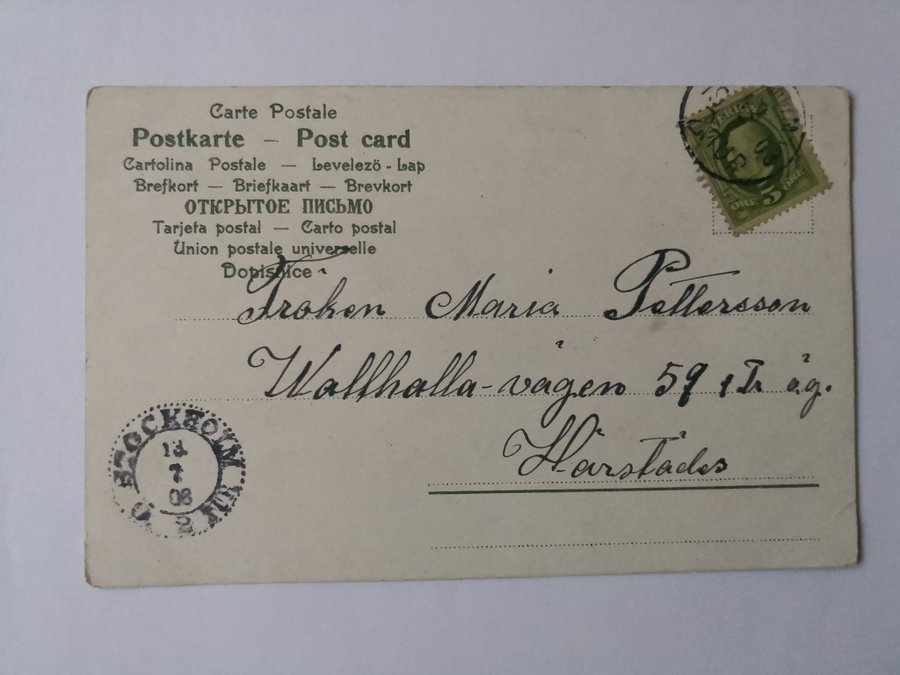 Carte Postale
Postkarte — Post card
Cartolina Postale — Levelezö-Lap
Brefkort — Briefkaart — Brevkort
ОТКРЫТОЕ ПИСЬМО
Tarjeta postal — Carto postal
Union postale universelle
Dopisnice
SVERIGE
5
ÖRE ÖRE
Fröken Maria Pettersson
Wallhalla-vägen 59 1 Tr ö.g.
Härstädes
STOCKHOLM
13
7
08
2